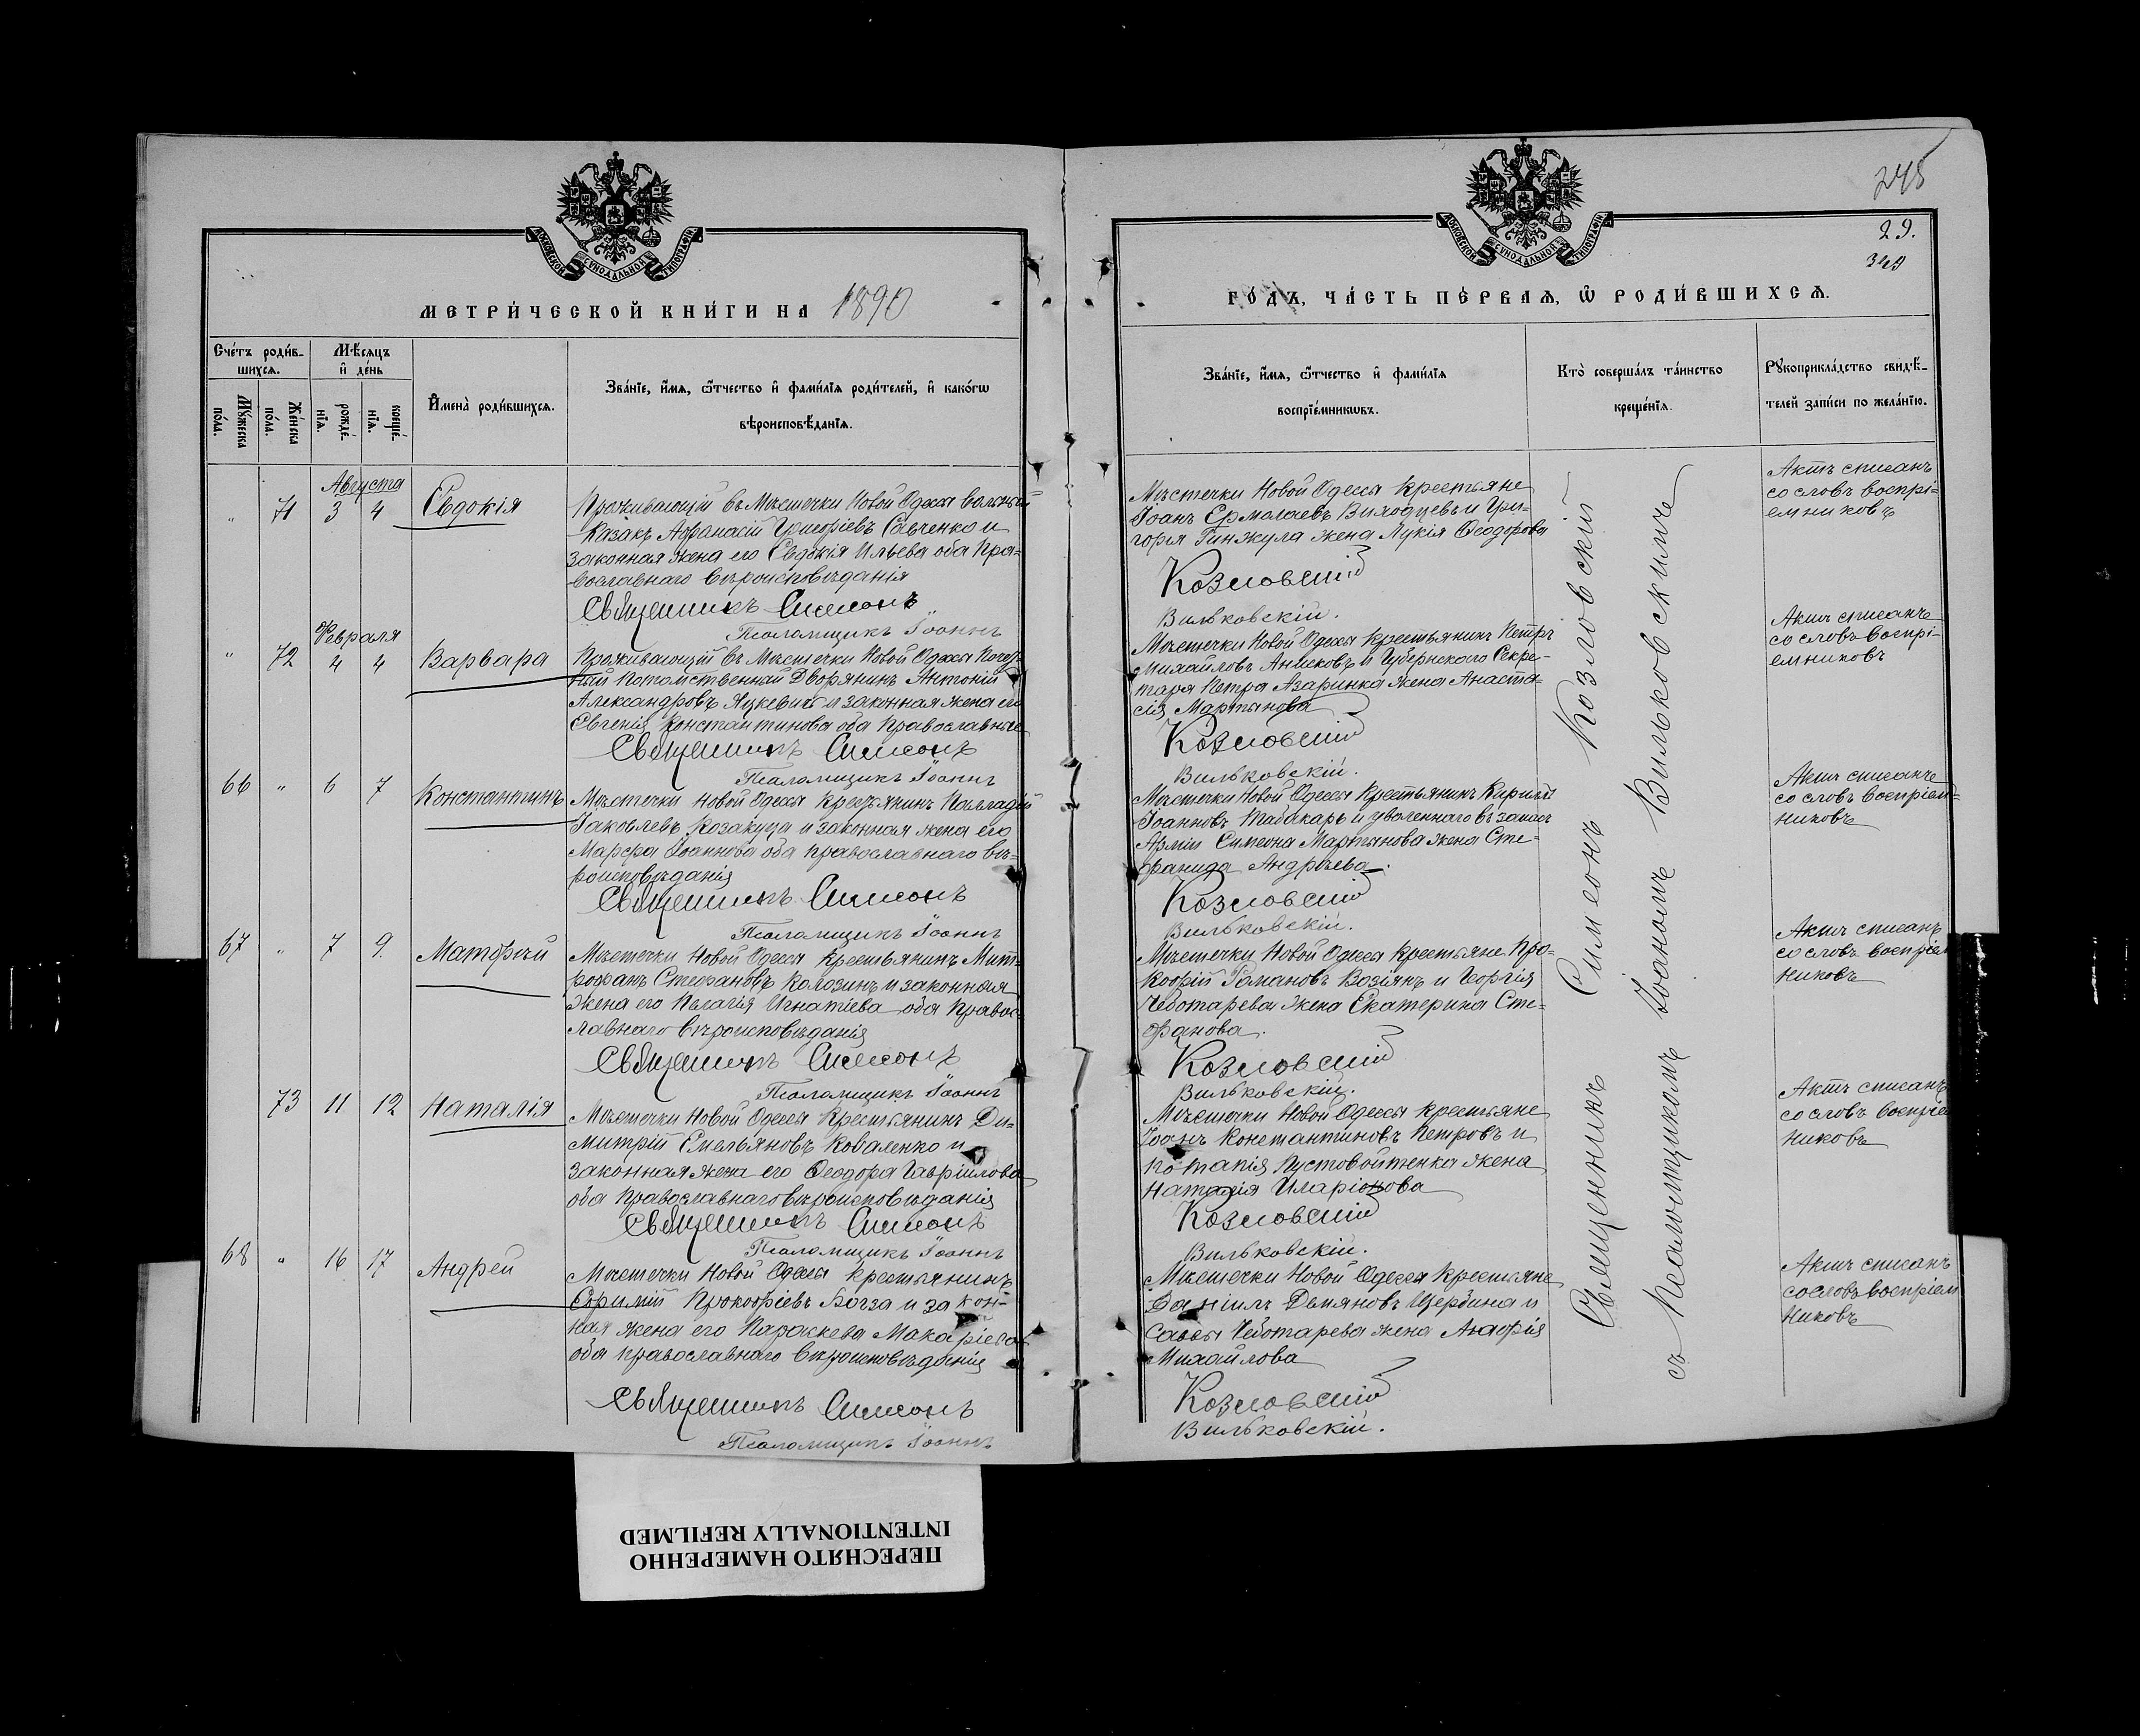 МОСКОВСКОЙ СѴНОДАЛЬНОЙ ТИПОГРАФІИ
МЕТРИ́ЧЕСКОЙ КНИ́ГИ НА 1890
Сче́тъ роди́в-
шихсѧ.
Мѣ́сѧцъ
и҆ де́нь
Мꙋ́жеска
по́ла.
Же́нска
по́ла.
рожде́-
нїѧ.
креще́-
нїѧ.
И҆мена̀ роди́вшихсѧ.
Зва́нїе, и҆́мѧ, ѻ҆́тчество и҆ фами́лїѧ роди́телей, и҆ како́гѡ
вѣроисповѣ́данїѧ.
Августа
" 71 3 4 Евдокія
Проживающій въ Мѣстечки Новой Одессы вольный
Казакъ Афанасій Григоріевъ Савченко и
законная жена его Евдокія Ильева оба Пра-
вославнаго вѣроисповѣданія
Священникъ Симеонъ
Псаломщикъ Іоаннъ
Февраля
" 72 4 4 Варвара
Проживающій въ Мѣстечки Новой Одессы
Потомственный Дворянинъ Антоній
Александровъ Яцкевичъ и законная жена его
Евгенія Константинова оба православные
Священникъ Симеонъ
Псаломщикъ Іоаннъ
66 " 6 7 Константинъ
Мѣстечки Новой Одессы крестьянинъ Палладій
Іаковлевъ Козакуца и законная жена его
Марфа Іоаннова оба православнаго вѣ-
роисповѣданія
Священникъ Симеонъ
Псаломщикъ Іоаннъ
67 " 7 9. Матфей
Мѣстечки Новой Одессы крестьянинъ Мит-
рофанъ Стефановъ Колозинъ и законная
жена его Пелагія Игнатіева оба правос-
лавнаго вѣроисповѣданія
Священникъ Симеонъ
Псаломщикъ Іоаннъ
73 11 12 Наталія
Мѣстечки Новой Одессы крестьянинъ Ди-
митрій Емельяновъ Коваленко и
законная жена его Ѳеодора Гавріилова
оба православнаго вѣроисповѣданія
Священникъ Симеонъ
Псаломщикъ Іоаннъ
68 " 16 17 Андрей
Мѣстечки Новой Одессы крестьянинъ
Ефимій Прокофіевъ Богза и закон-
ная жена его Параскева Макаріева
оба православнаго вѣроисповѣданія
Священникъ Симеонъ
Псаломщикъ Іоаннъ
245
29.
МОСКОВСКОЙ СѴНОДАЛЬНОЙ ТИПОГРАФІИ
ГО́ДЪ, ЧА́СТЬ ПЕ́РВАѦ, Ѡ҆ РОДИ́ВШИХСѦ.
Зва́нїе, и҆́мѧ, ѻ҆́тчество и҆ фами́лїѧ
воспрїе́мникѡвъ.
Кто̀ соверша́лъ та́инство
креще́нїѧ.
Рꙋкоприкла́дство свидѣ́-
телей за́писи по жела́нїю.
Мѣстечки Новой Одессы крестьяне
Іоанъ Ермолаевъ Виходцевъ и Гри-
горія Гинжула жена Лукія Ѳеодорова
Козловскій
Вильковскій.
Актъ списанъ
со словъ воспрі-
емниковъ
Мѣстечки Новой Одессы крестьянинъ Петръ
Михайловъ и Губернского Секре-
таря Петра Азаринка жена Анаста-
сія Мартынова
Козловскій
Вильковскій.
Актъ списанъ
со словъ воспрі-
емниковъ
Мѣстечки Новой Одессы крестьянинъ Кирилъ
Іоанновъ Табакаръ и уволеннаго въ запасъ
Арміи Симеона Мартынова жена Сте-
фанида Андреева.
Козловскій
Вильковскій.
Актъ списанъ
со словъ воспріем-
никовъ
Мѣстечки Новой Одессы крестьяне Про-
кофій Романовъ Возіянъ и Георгія
Чеботарева жена Екатерина Сте-
фанова.
Козловскій
Вильковскій.
Актъ списанъ
со словъ воспріем
никовъ
Мѣстечки Новой Одессы крестьяне
Іоанъ Константиновъ Петровъ и
Потапія Пустовойтенка жена
Наталія Иларіонова
Козловскій
Вильковскій.
Актъ списанъ
со словъ воспріе
никовъ
Мѣстечки Новой Одессы крестьяне
Даніилъ Демяновъ Щербина и
Савы Чеботарева жена Агафія
Михайлова
Козловскій
Вильковскій.
Актъ списанъ
со словъ воспріем
никовъ
Священникъ Симеонъ Козловскій
съ Псаломщикомъ Іоаномъ Вильковскимъ
ПЕРЕСНЯТО НАМЕРЕННО
INTENTIONALLY REFILMED